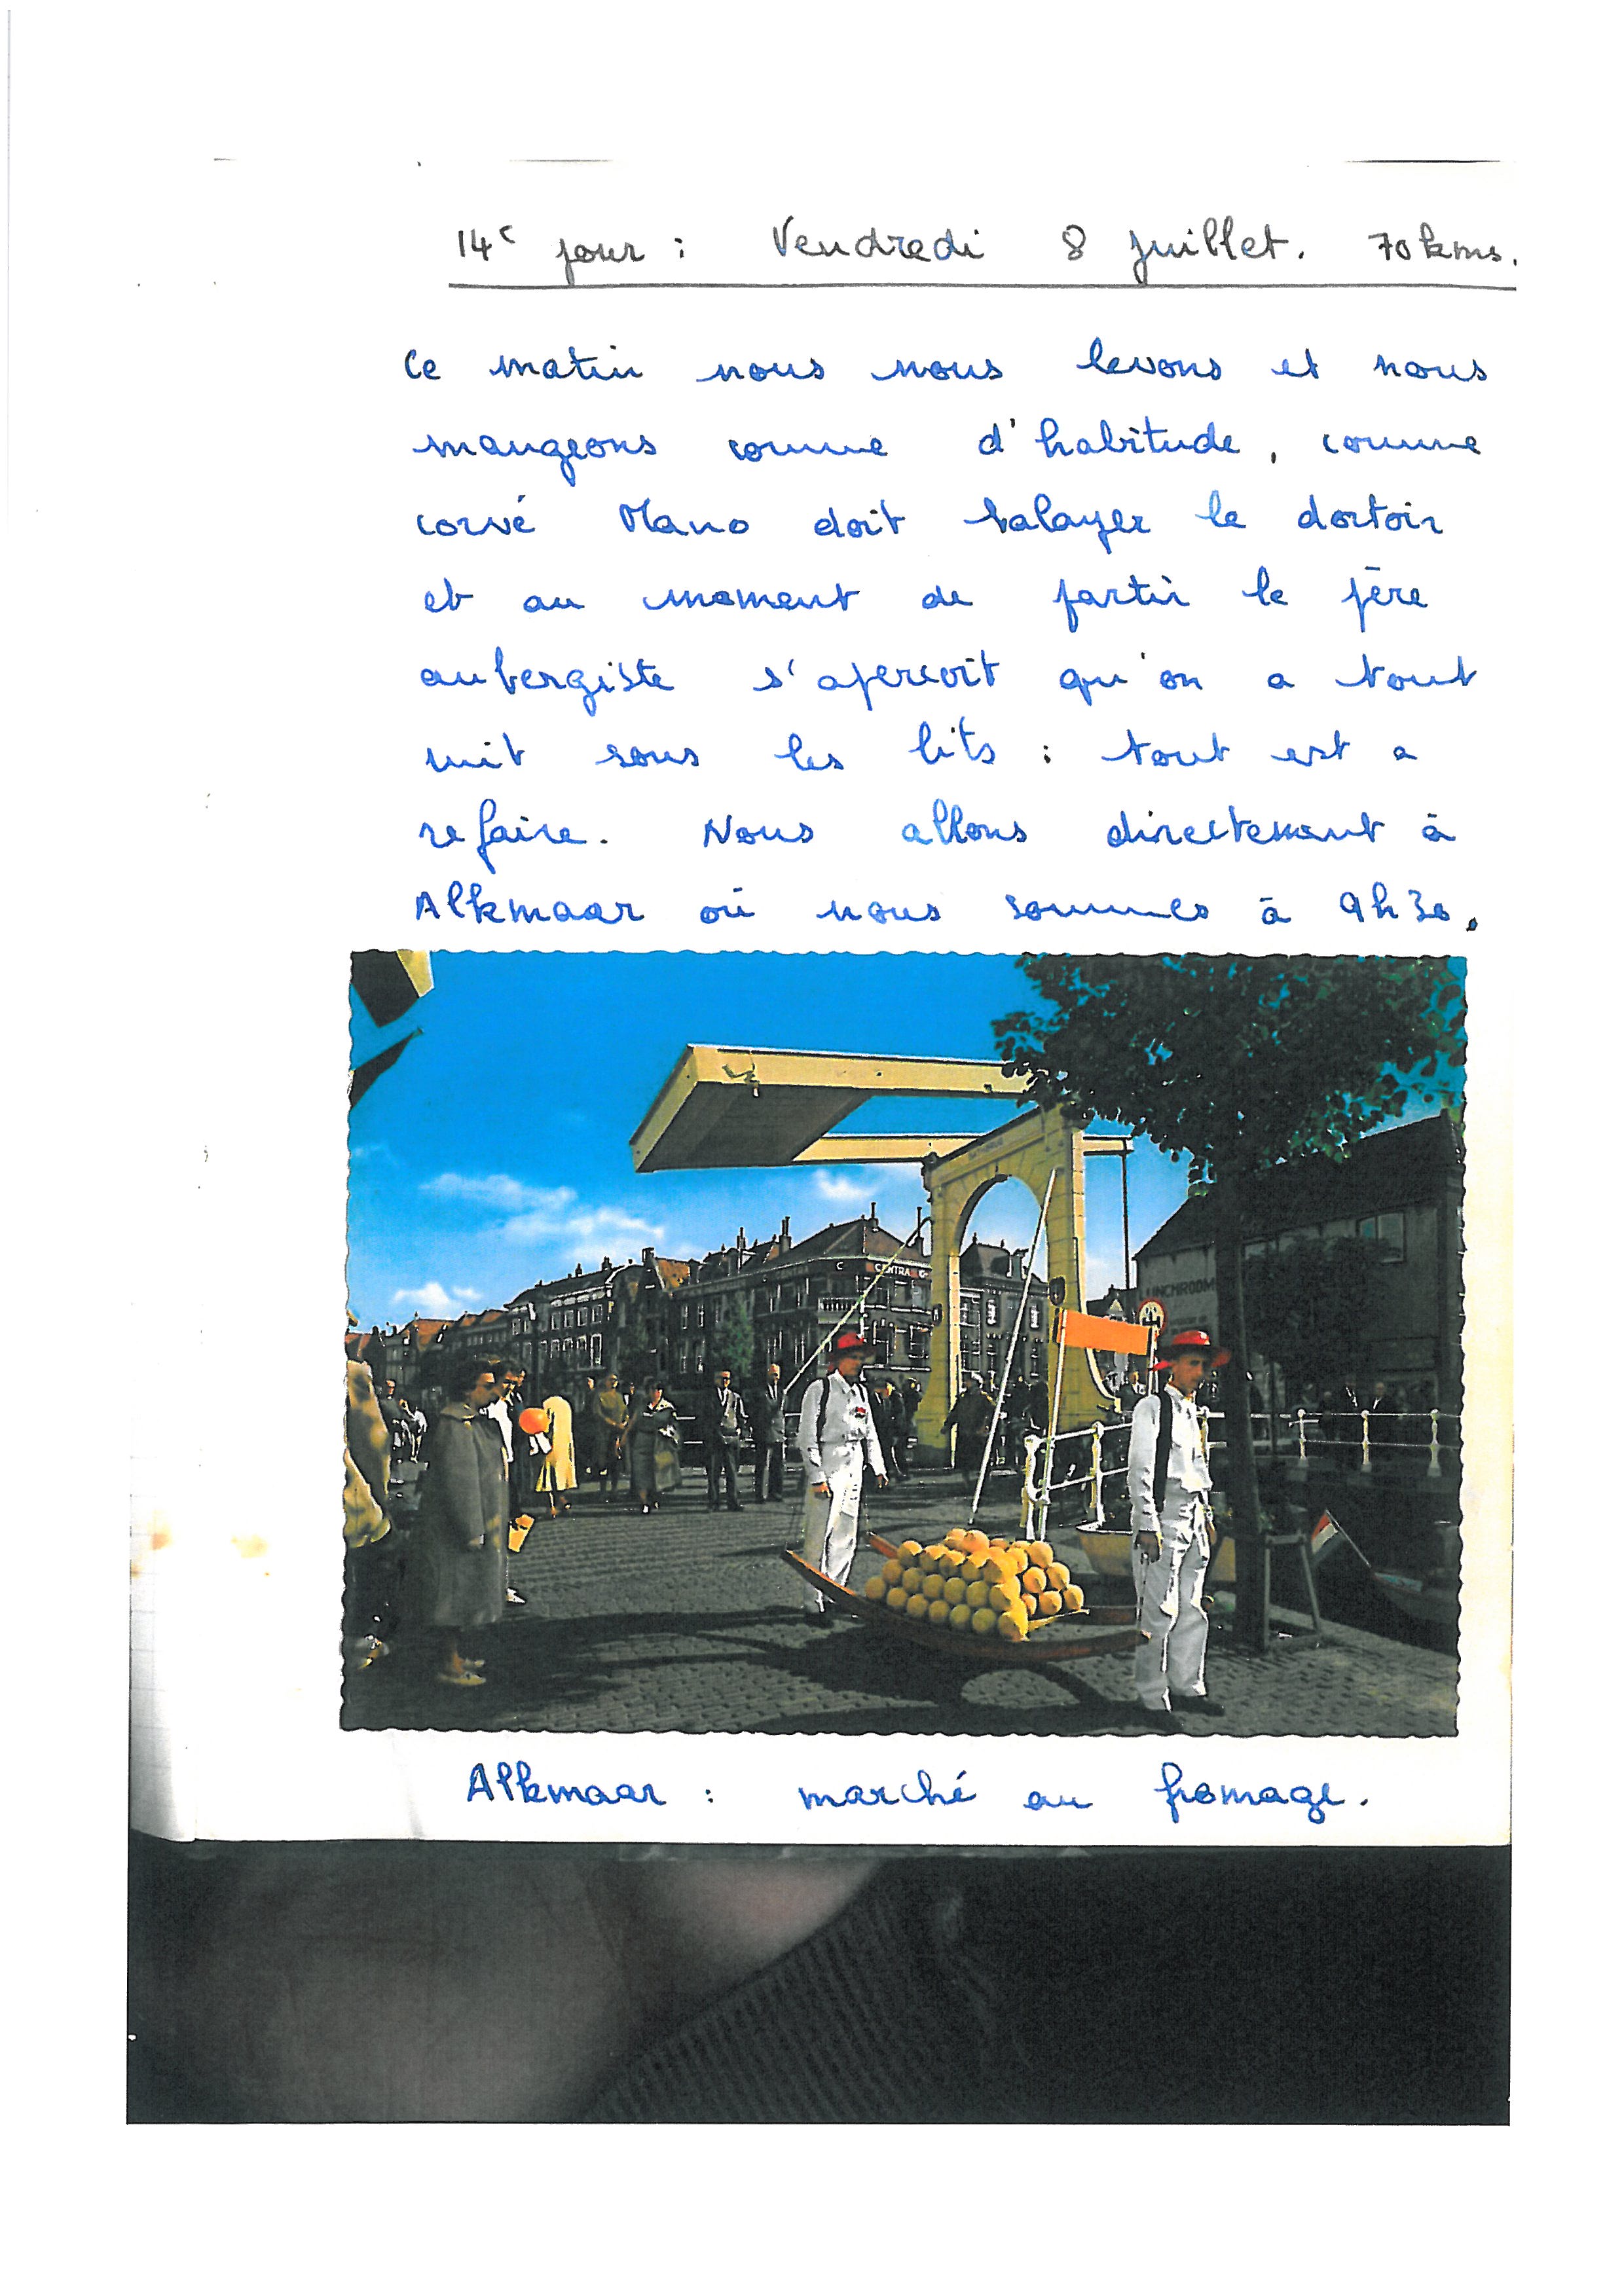 14e jour : Vendredi 8 juillet. 70 kms.
Ce matin nous nous levons et nous
mangeons comme d'habitude, comme
corvé Mano doit balayer le dortoir
et au moment de partir le père
aubergiste s'apercoit qu'on a tout
mit sous les lits : tout est a
refaire. Nous allons directement à
Alkmaar où nous sommes à 9h30.
CENTRA
LUNCHROOM
Alkmaar : marché au fromage.